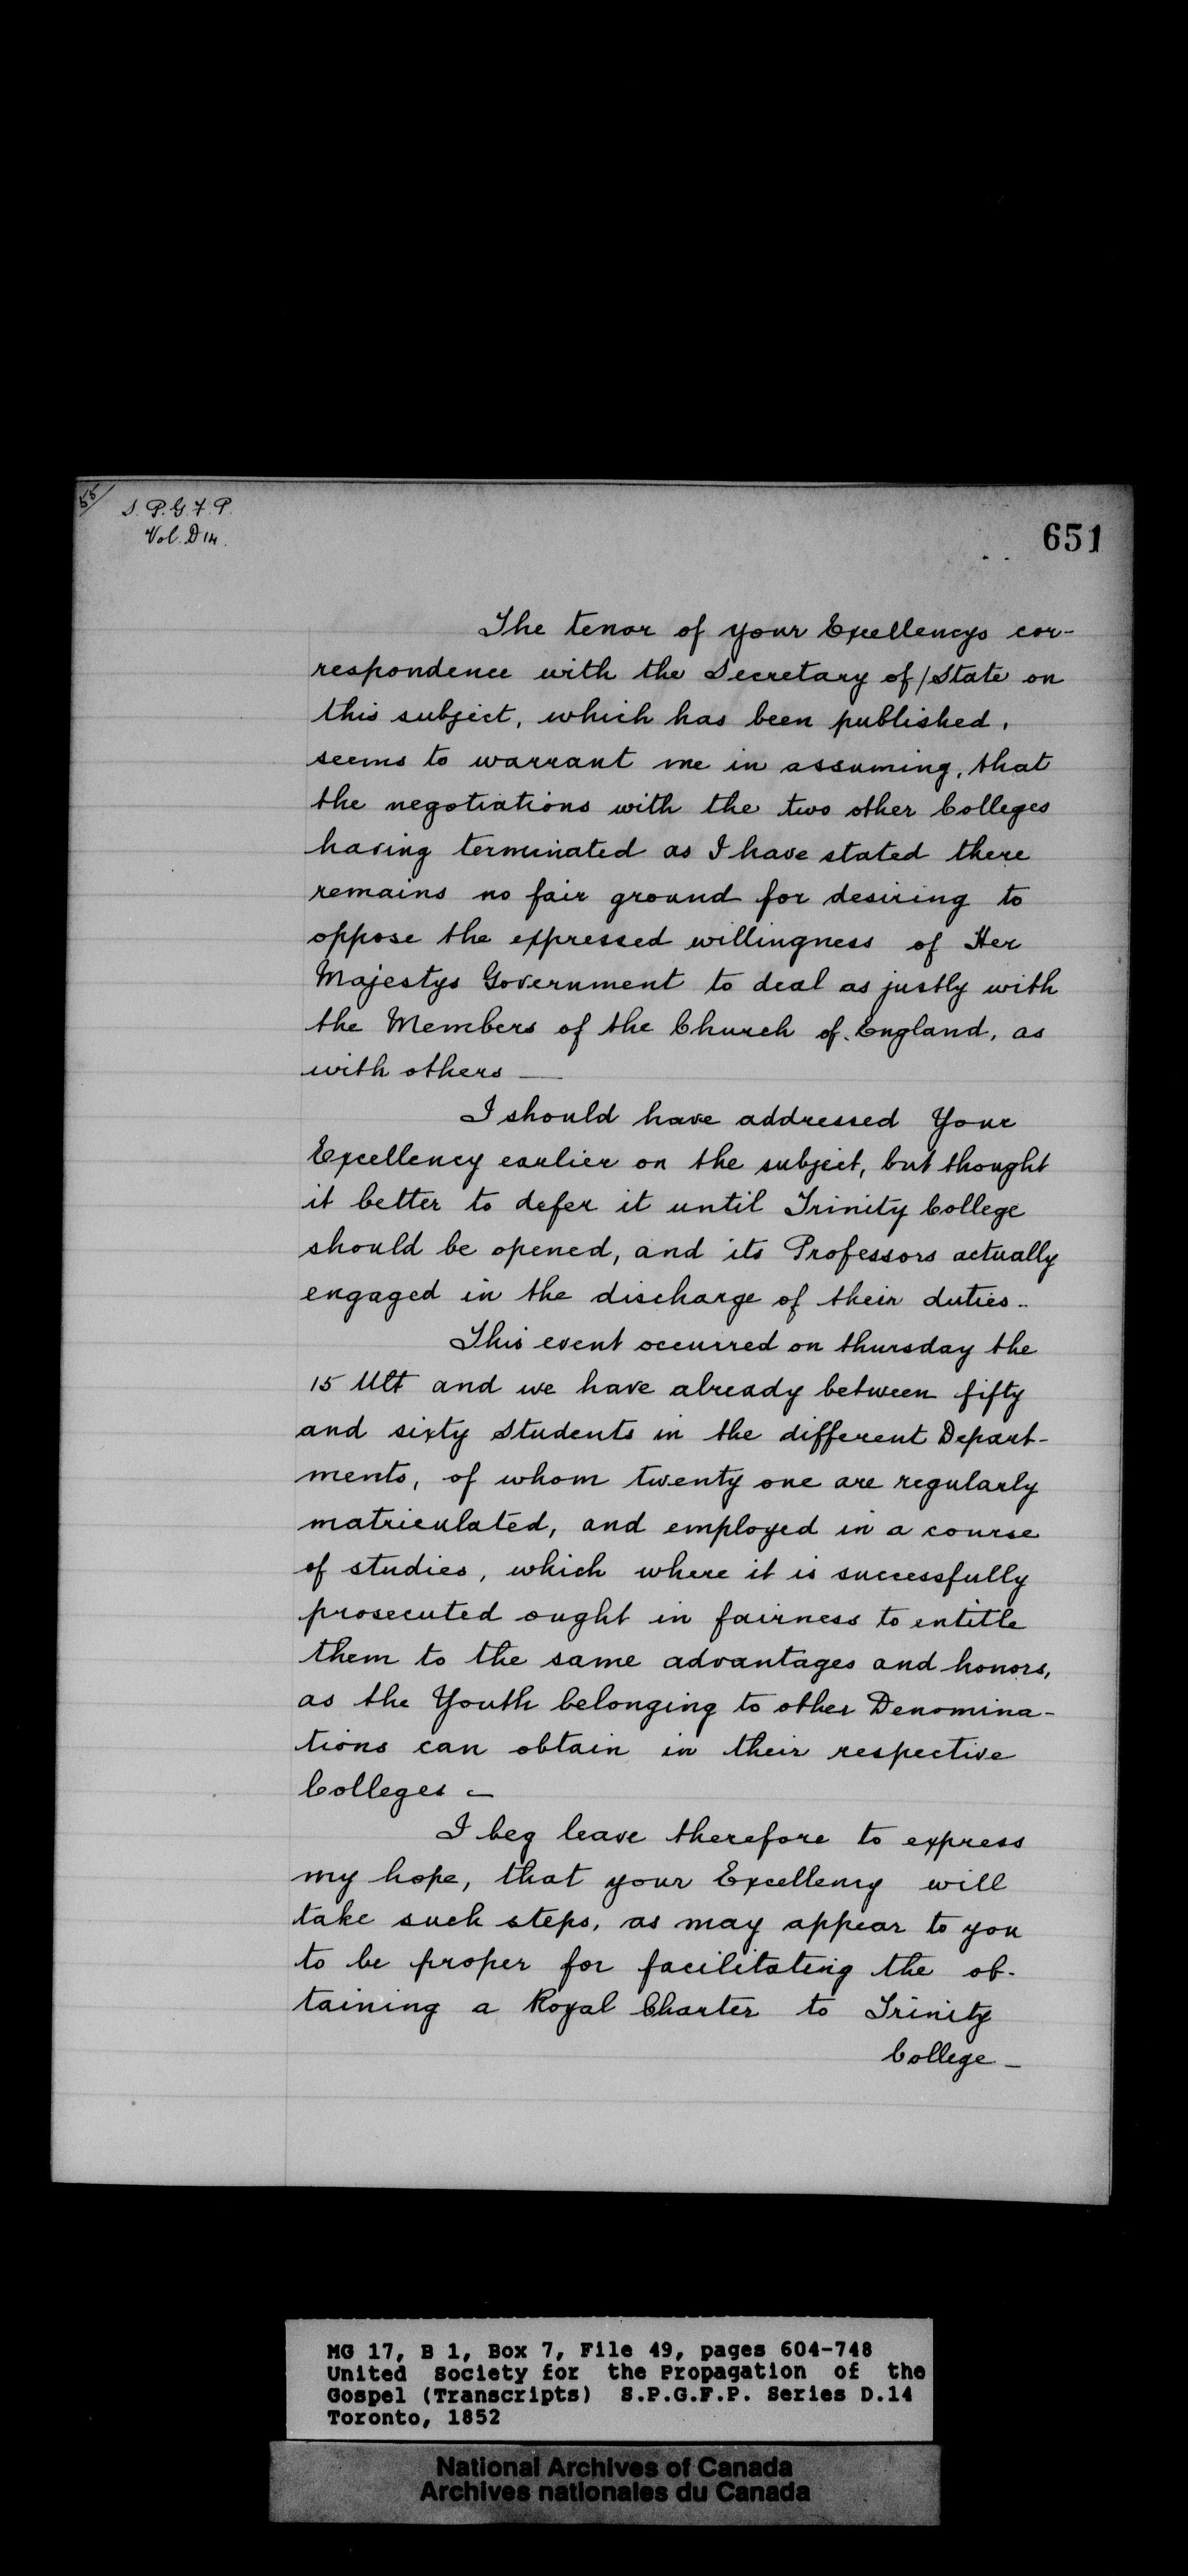 55/
S.P.G.F.P.
Vol. D 14.
651
The tenor of your Excellencys cor-
respondence with the Secretary of/State on
this subject, which has been published,
seems to warrant me in assuming, that
the negotiations with the two other Colleges
having terminated as I have stated there
remains no fair ground for desiring to
oppose the expressed willingness of Her
Majestys Government to deal as justly with
the Members of the Church of England, as
with others —
I should have addressed Your
Excellency earlier on the subject, but thought
it better to defer it until Trinity College
should be opened, and its Professors actually
engaged in the discharge of their duties..
This event occurred on thursday the
15 Ult and we have already between fifty
and sixty Students in the different Depart-
ments, of whom twenty one are regularly
matriculated, and employed in a course
of studies, which where it is successfully
prosecuted ought in fairness to entitle
them to the same advantages and honors,
as the Youth belonging to other Denomina-
tions can obtain in their respective
Colleges —
I beg leave therefore to express
my hope, that your Excellency will
take such steps, as may appear to you
to be proper for facilitating the ob-
taining a Royal Charter to Trinity
College —
MG 17, B 1, Box 7, File 49, pages 604-748
United Society for the Propagation of the
Gospel (Transcripts) S.P.G.F.P. Series D.14
Toronto, 1852
National Archives of Canada
Archives nationales du Canada